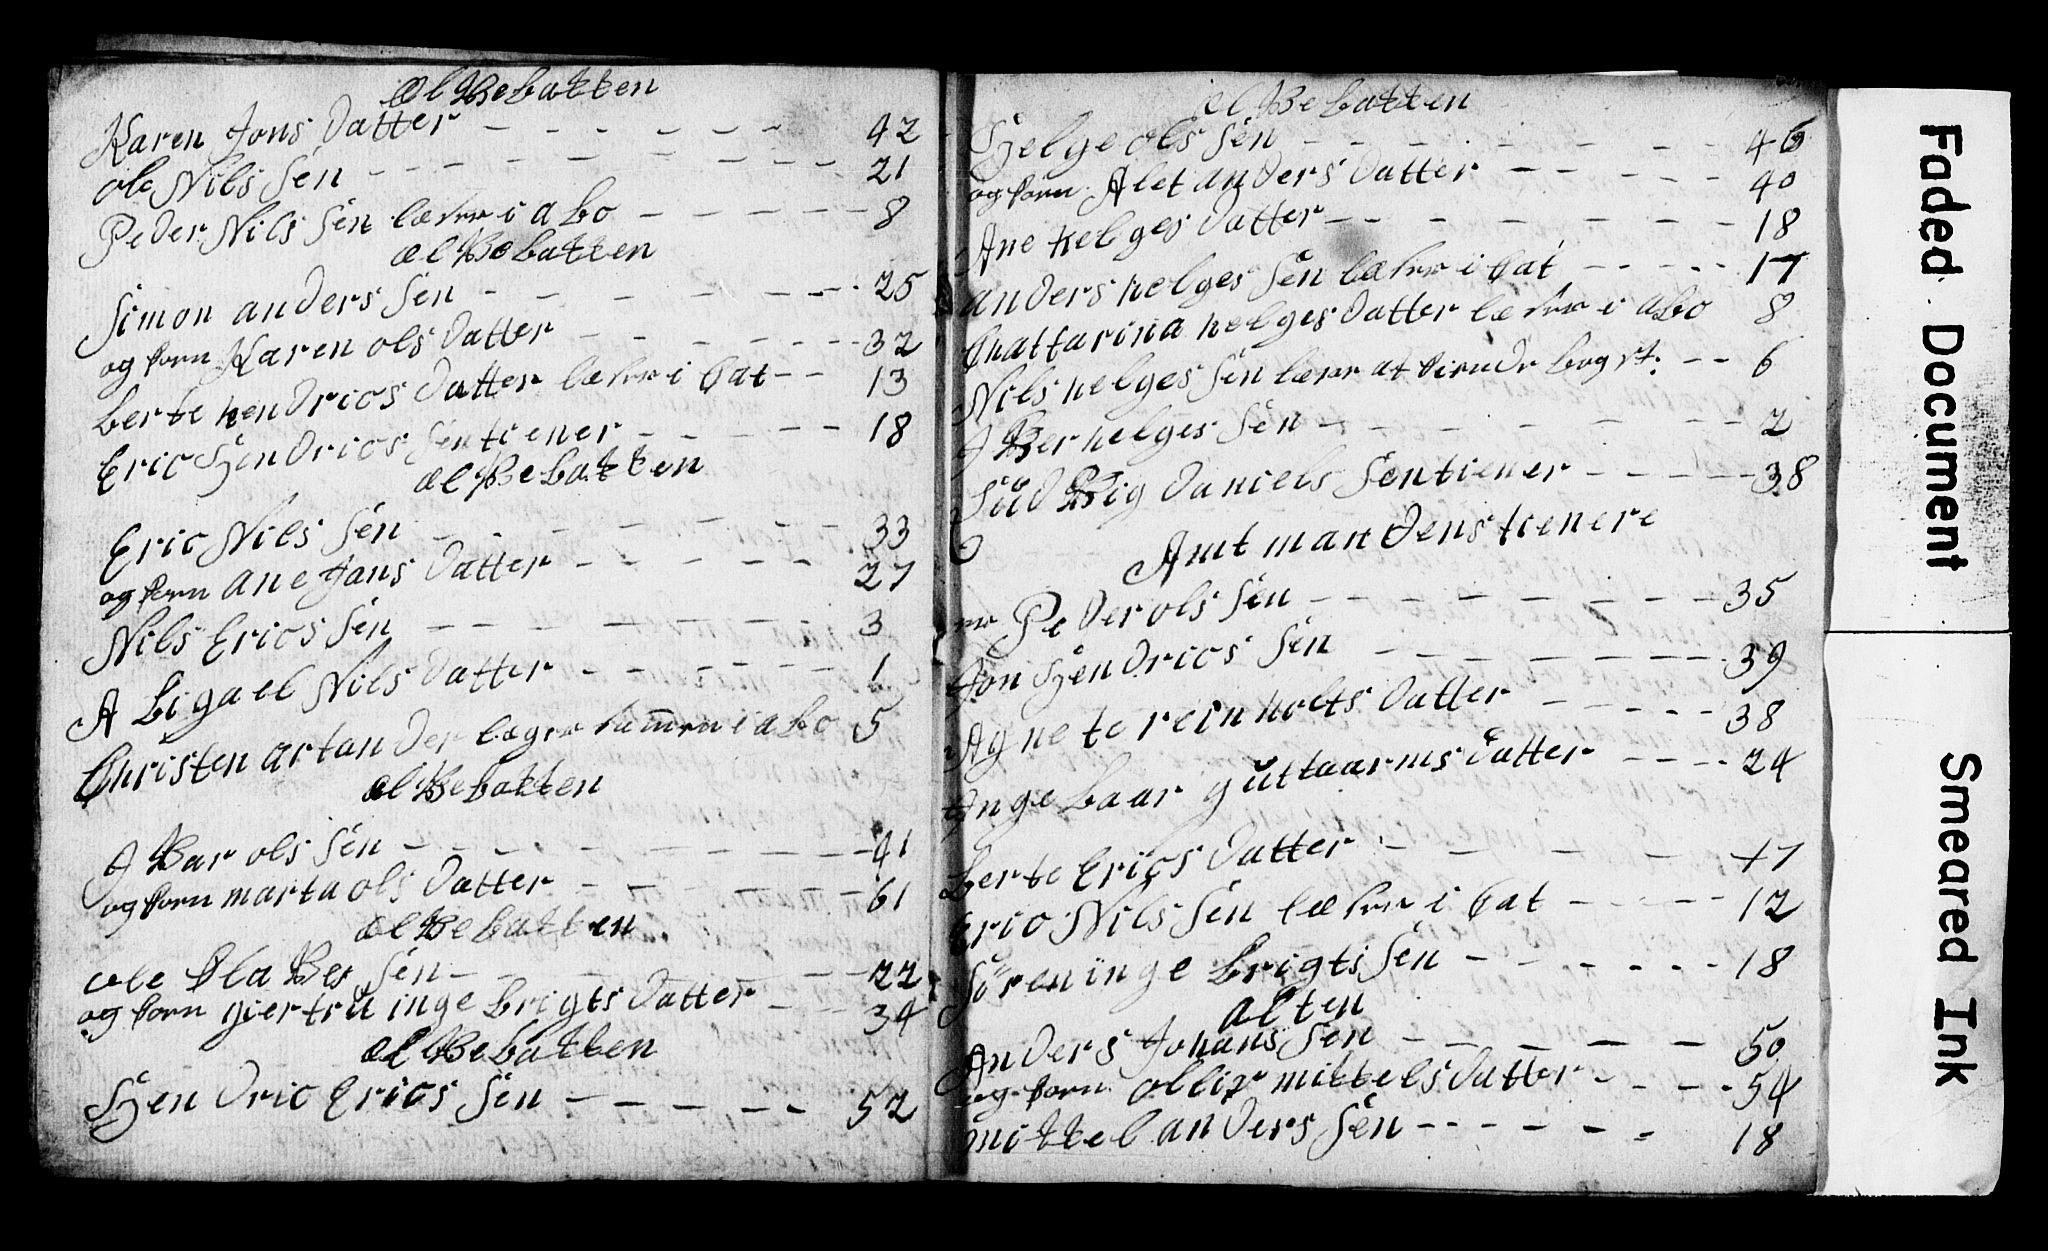 ælvebakken
Karen Jons datter - - - - - - - 42
ole Nils Sen - - - - - - - - - 21
Peder Nils Sen lærer i abo - - - - - 8
ælvebakken
Simon anders Sen - - - - - - - - 25
og kom Karen ols datter - - - - - - 32
berte hendrics datter lærer i Cat - - 13
Eric Hendrics Sen tiener - - - - - 18
ælvebakken
Eric Nils Sen - - - - - - - 33
og kom ane Jans datter - - - - - - 27
Nils Erics Sen - - - - - - - - 3
A bigael Nils datter - - - - - - 1
Christen artander i abo 5
ælvebakken
J var ols Sen - - - - - - - - - 41
og kom marta ols datter - - - - - - 61
ælvebakken
ole ola ves Sen - - - - - - - 22
og kom giertru inge brigts datter - - 34
ælvebakken
Hendric Erics Sen - - - - - - 52
ælvebakken
Helge ols Sen - - - - - - - 46
og kom Alet anders datter - - - - - 40
Ane helges datter - - - - - - - 18
anders helges Sen lærer i Cat - - - - - 17
Chattarina helges datter lærer i abo 8
Nils helges Sen lærer at kiende bogst: - - 6
J ver helges Sen - - - - - - - - 2
Lüdvig daniels Sen tiener - - - - - 38
Amtmandens tienere
Peder ols Sen - - - - - - - - 35
Jon Hendrics Sen - - - - - - - 39
Agnete reinholts datter - - - - - 38
Inge baar guttaarms datter - - - - 24
Berte Erics datter - - - - - 17
Eric Nils Sen lærer i Cat - - - - - 12
Søren inge brigts Sen - - - - - - 18
alten
Anders Johans Sen - - - - - 50
og kom ollip mikkels datter - - - - 54
mikkel anders Sen - - - - - - - 18
Faded Document
Smeared Ink